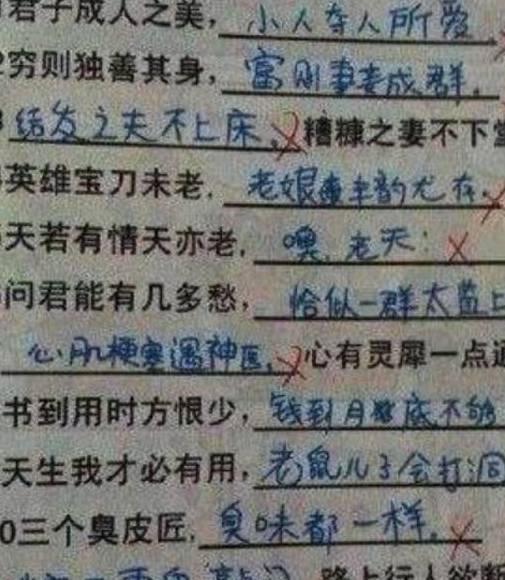 君子成人之美，小人夺人所爱
穷则独善其身，富则妻妾成群.
结发之夫不上床，糟糠之妻不下堂
英雄宝刀未老.老娘丰韵尤存.
天若有情天亦老，噢，老天：
问君能有几多愁，恰似一群太监上
心肌梗塞遇神医，心有灵犀一点通
书到用时方恨少，钱到月底不够
天生我才必有用，老鼠儿子会打洞
0三个臭皮匠.臭味都一样.
路上行人欲断